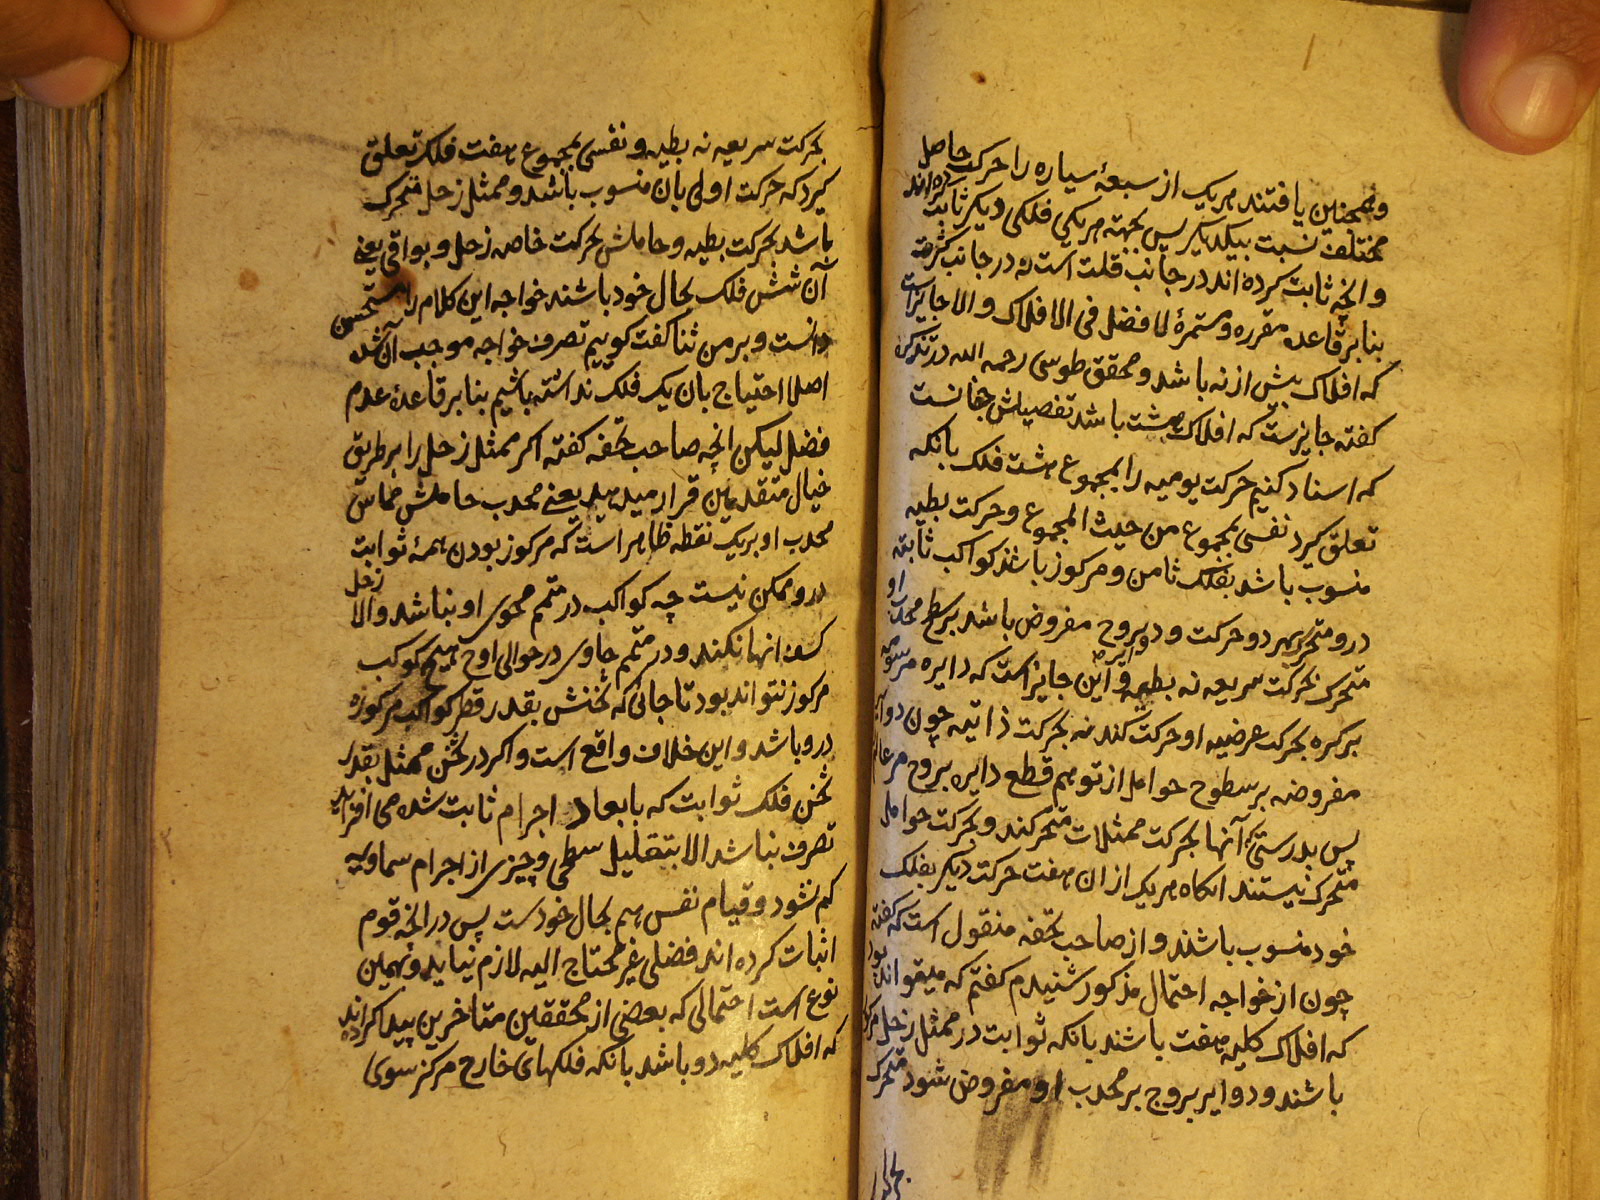 وهمچنین یافتند هریک از سبعهٔ سیاره را حرکت حاصل
مختلف نسبت بیکدیگر پس بجهته هریکی فلکی دیگر ثابت کرده‌اند
و انچه ثابت کرده اند در جانب قلت است نه در جانب کثرت
بنابر قاعده مقرره و مستمرهٔ لا فضل فی الافلاک والا جایز است
که افلاک بیش از نه باشد و محقق طوسی رحمه الله در تذکره
کفته جایزست که افلاک هشت باشد تفصیلش چنانست
که اسناد کنیم حرکت یومیه را بمجموع هشت فلک بانکه
تعلق کیرد نفسی بمجموع من حیث المجموع و حرکت بطیه
منسوب باشد بفلک ثامن و مرکوز باشد کواکب ثابته
درو متحرک بهر دو حرکت و دوایر بروج مفروض باشد بر سطح محدب او
متحرک بحرکت سریعه نه بطیه و این جایز است که دایره مرسومه
بر کره بحرکت عرضیه او حرکت کند نه بحرکت ذاتیه چون دوایر
مفروضه بر سطوح حوامل از توهم قطع دایره بروج مر عالم
پس بدرستی آنها بحرکت ممثلات متحرکند و بحرکت حوامل
متحرک نیستند انکاه هریک از ان هفت حرکت دیکر بفلک
خود منسوب باشند و از صاحب تحفه منقول است که کفته
چون از خواجه احتمال مذکور شنیدم کفتم که میتواند بود
که افلاک کلیه هفت باشند بانکه ثوابت در ممثل زحل مرکوز
باشند و دوایر بروج بر محدب او مفروض شود متحرک
بحرکت سریعه نه بطیه و نفسی بمجموع هفت فلک تعلق
کیرد که حرکت اولی بان منسوب باشد و ممثل زحل متحرک
باشد بحرکت بطیه و حاملش بحرکت خاصه زحل و بواقی یعنی
آن شش فلک بحال خود باشند خواجه این کلام را مستحسن
دانست و بر من ثنا کفت کوییم تصرف خواجه موجب آن شد
اصلا احتیاج بان یک فلک نداشته باشیم بنابر قاعدهٔ عدم
فضل لیکن انچه صاحب تحفه کفته اکر ممثل زحل را بر طریق
خیال متقدمین قرار میدهد یعنی محدب حاملش مماس
محدب او بریک نقطه ظاهر است که مرکوز بودن همهٔ ثوابت
درو ممکن نیست چه کواکب در متمم محوی او نباشد والا زحل
کسف انها نکند و در متمم حاوی در حوالی اوج هیچ کوکب
مرکوز نتواند بود تا جائی که ثخنش بقدر قطر کواکب مرکوزه
درو باشد و این خلاف واقع است و اکر در ثخن ممثل بقدر
ثخن فلک ثوابت که بابعاد اجرام ثابت شده می افزاید
تصرف نباشد الا بتقلیل سطحی و چیزی از اجرام سماویه
کم نشود و قیام نفس هم بحال خودست پس در انچه قوم
اثبات کرده اند فضلی غیر محتاج الیه لازم نیاید و بهمین
نوع است احتمالی که بعضی از محققین متاخرین پیدا کرده‌اند
که افلاک کلیه دو باشد بانکه فلکهای خارج مرکز سوی